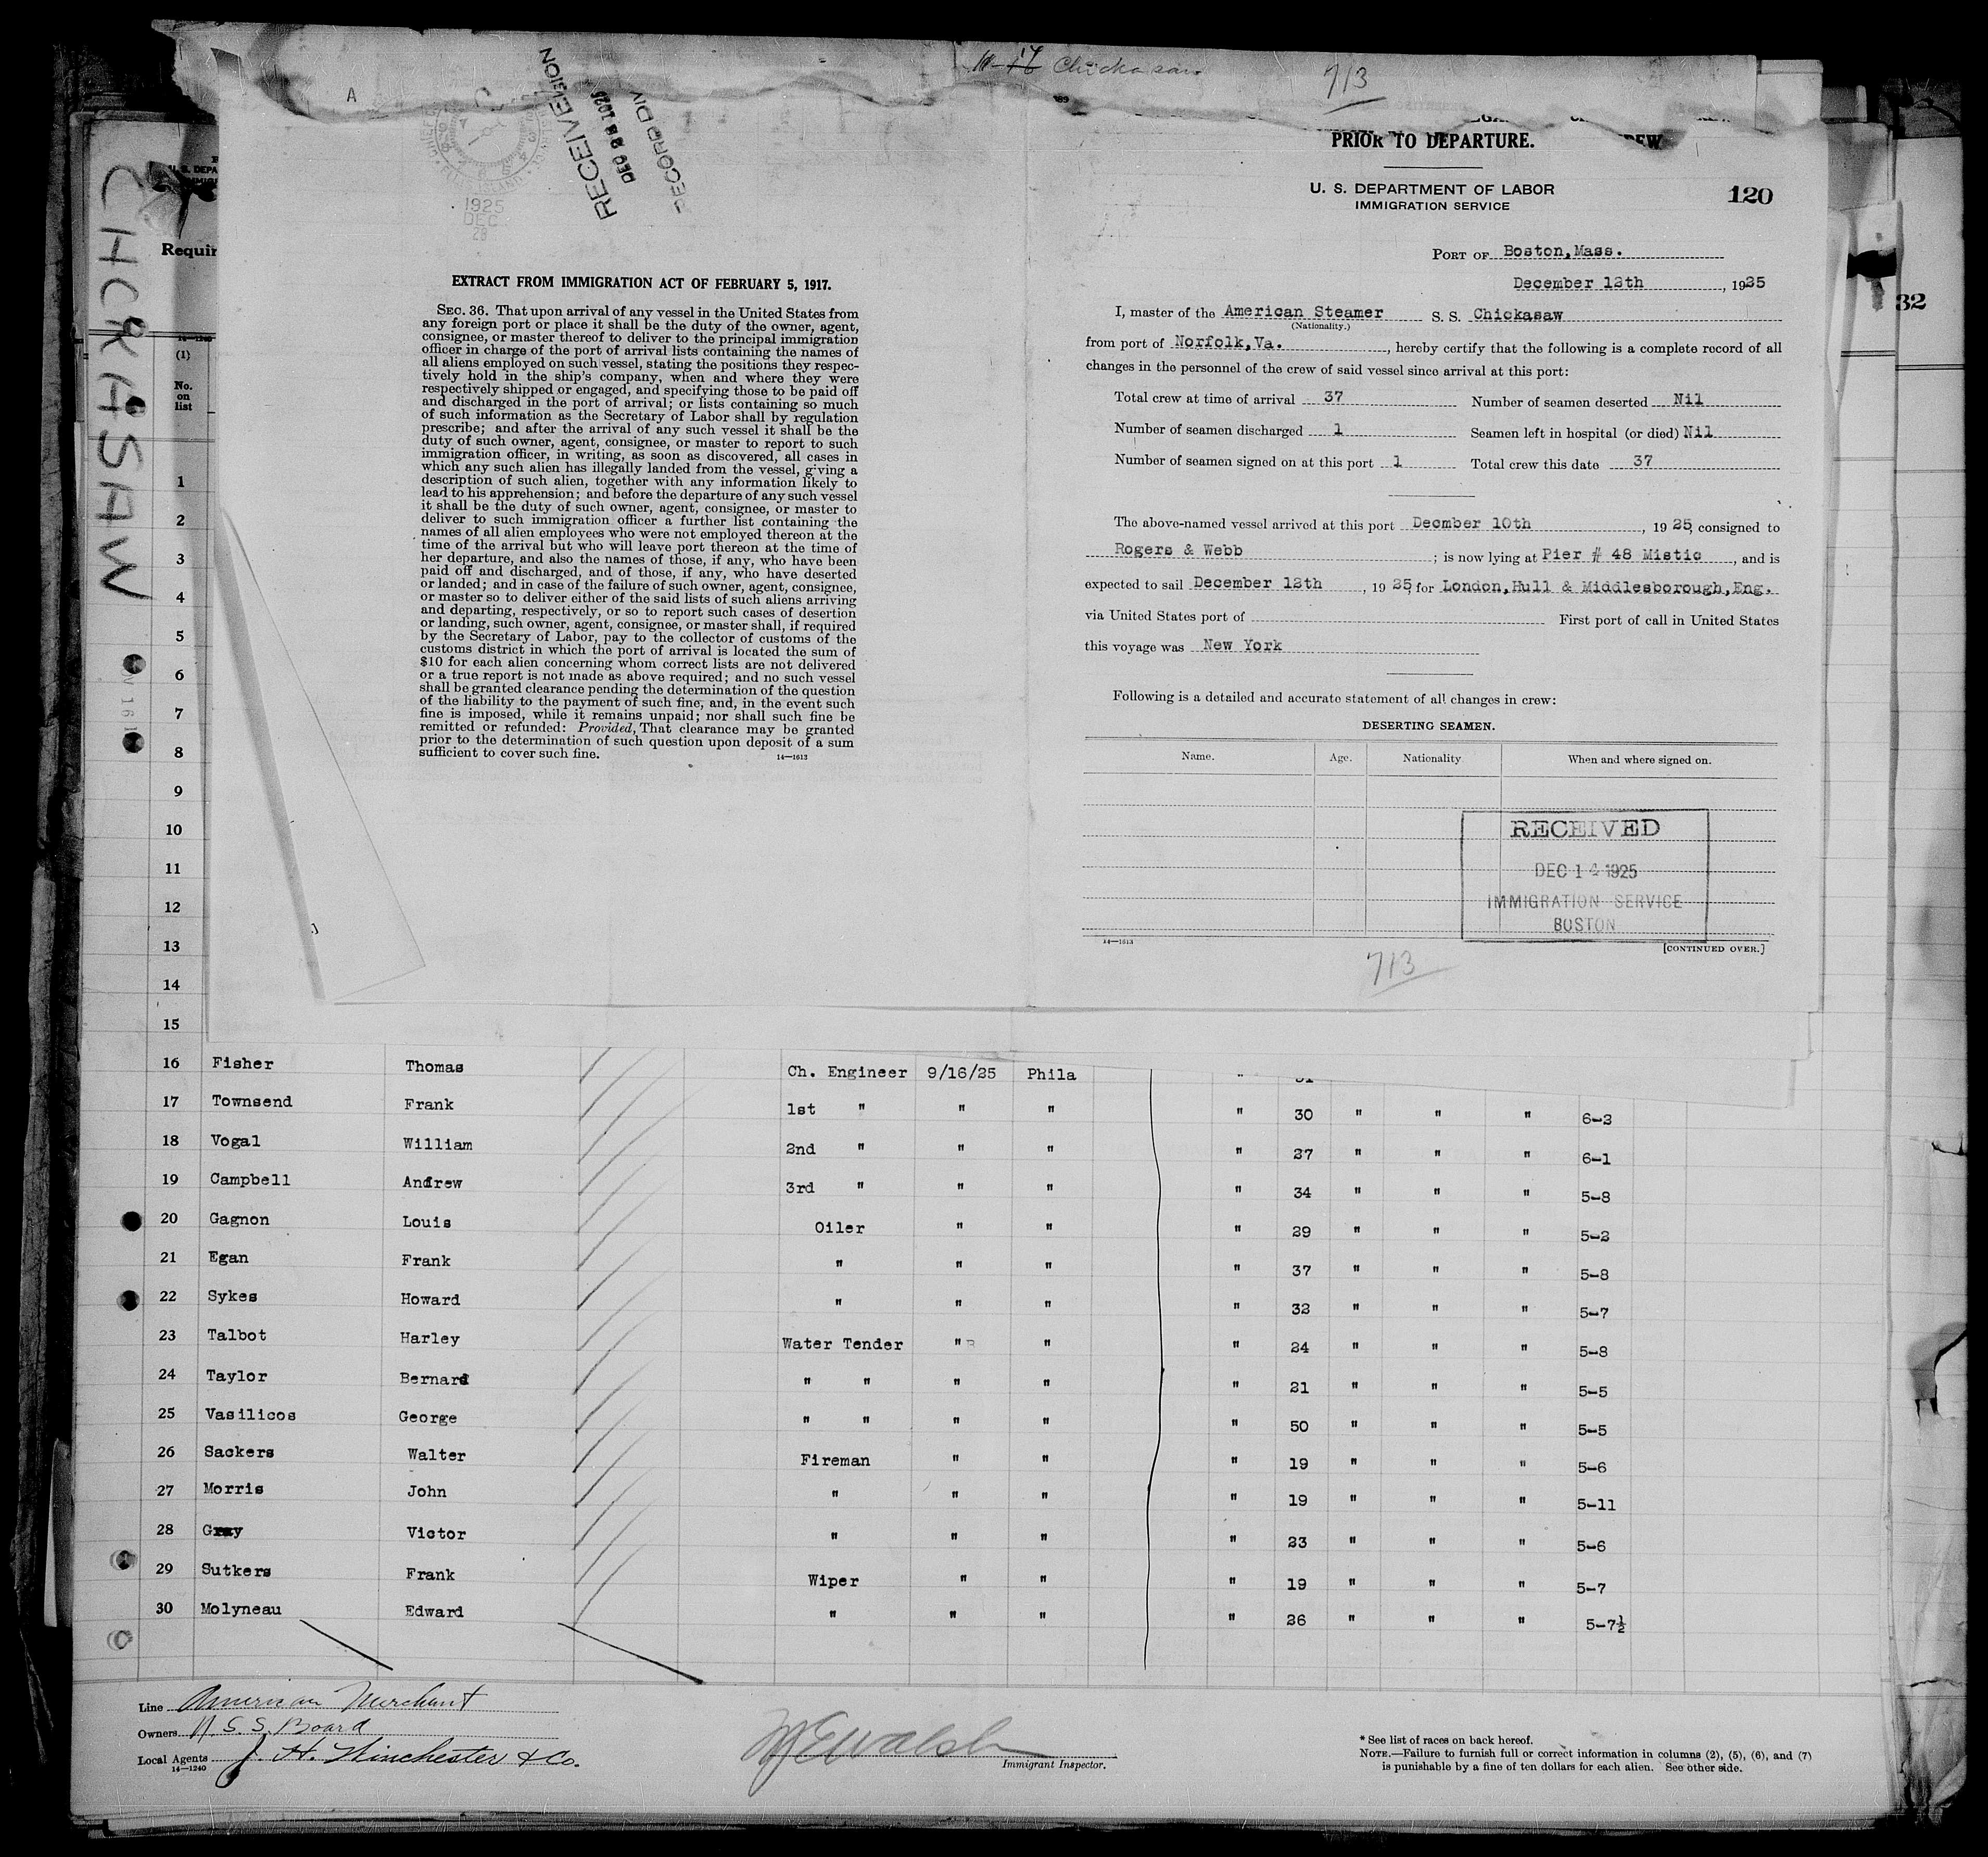 Chickasaw
713
A
RECEIVED
DEC 28 1925
RECORD DIV
1925
DEC
28
PRIOR TO DEPARTURE.
U. S. DEPARTMENT OF LABOR
IMMIGRATION SERVICE
120
PORT OF Boston,Mass.
December 12th, 1925
I, master of the American Steamer S. S. Chickasaw
(Nationality.)
from port of Norfolk,Va., hereby certify that the following is a complete record of all
changes in the personnel of the crew of said vessel since arrival at this port:
Total crew at time of arrival 37 Number of seamen deserted Nil
Number of seamen discharged 1 Seamen left in hospital (or died) Nil
Number of seamen signed on at this port 1 Total crew this date 37
The above-named vessel arrived at this port Decmber 10th, 1925, consigned to
Rogers & Webb; is now lying at Pier # 48 Mistic, and is
expected to sail December 12th, 1925, for London,Hull & Middlesborough,Eng.
via United States port of First port of call in United States
this voyage was New York
Following is a detailed and accurate statement of all changes in crew:
DESERTING SEAMEN.
Name. Age. Nationality When and where signed on.
RECEIVED
DEC 14 1925
IMMIGRATION SERVICE
BOSTON
14—1613
[CONTINUED OVER.]
713
EXTRACT FROM IMMIGRATION ACT OF FEBRUARY 5, 1917.
SEC. 36. That upon arrival of any vessel in the United States from
any foreign port or place it shall be the duty of the owner, agent,
consignee, or master thereof to deliver to the principal immigration
officer in charge of the port of arrival lists containing the names of
all aliens employed on such vessel, stating the positions they respec-
tively hold in the ship's company, when and where they were
respectively shipped or engaged, and specifying those to be paid off
and discharged in the port of arrival; or lists containing so much
of such information as the Secretary of Labor shall by regulation
prescribe; and after the arrival of any such vessel it shall be the
duty of such owner, agent, consignee, or master to report to such
immigration officer, in writing, as soon as discovered, all cases in
which any such alien has illegally landed from the vessel, giving a
description of such alien, together with any information likely to
lead to his apprehension; and before the departure of any such vessel
it shall be the duty of such owner, agent, consignee, or master to
deliver to such immigration officer a further list containing the
names of all alien employees who were not employed thereon at the
time of the arrival but who will leave port thereon at the time of
her departure, and also the names of those, if any, who have been
paid off and discharged, and of those, if any, who have deserted
or landed; and in case of the failure of such owner, agent, consignee,
or master so to deliver either of the said lists of such aliens arriving
and departing, respectively, or so to report such cases of desertion
or landing, such owner, agent, consignee, or master shall, if required
by the Secretary of Labor, pay to the collector of customs of the
customs district in which the port of arrival is located the sum of
$10 for each alien concerning whom correct lists are not delivered
or a true report is not made as above required; and no such vessel
shall be granted clearance pending the determination of the question
of the liability to the payment of such fine, and, in the event such
fine is imposed, while it remains unpaid; nor shall such fine be
remitted or refunded: Provided, That clearance may be granted
prior to the determination of such question upon deposit of a sum
sufficient to cover such fine.
14—1613
CHCKASAW
32
Requir
14—1240
(1)
No.
on
list
1
2
3
4
5
6
7
8
9
10
11
12
13
14
15
16 Fisher Thomas Ch. Engineer 9/16/25 Phila "
17 Townsend Frank 1st " " " " 30 " " " 6-2
18 Vogal William 2nd " " " " 27 " " " 6-1
19 Campbell Andrew 3rd " " " " 34 " " " 5-8
20 Gagnon Louis Oiler " " " 29 " " " 5-2
21 Egan Frank " " " " 37 " " " 5-8
22 Sykes Howard " " " " 32 " " " 5-7
23 Talbot Harley Water Tender " " " 24 " " " 5-8
24 Taylor Bernard " " " " " 21 " " " 5-5
25 Vasilicos George " " " " " 50 " " " 5-5
26 Sackers Walter Fireman " " " 19 " " " 5-6
27 Morris John " " " " 19 " " " 5-11
28 Gray Victor " " " " 23 " " " 5-6
29 Sutkers Frank Wiper " " " 19 " " " 5-7
30 Molyneau Edward " " " " 26 " " " 5-7½
Line American Merchant
Owners U. S. S. Board
Local Agents J. H. Winchester & Co.
14—1240
WJEWalsh
Immigrant Inspector.
* See list of races on back hereof.
NOTE.—Failure to furnish full or correct information in columns (2), (5), (6), and (7)
is punishable by a fine of ten dollars for each alien. See other side.